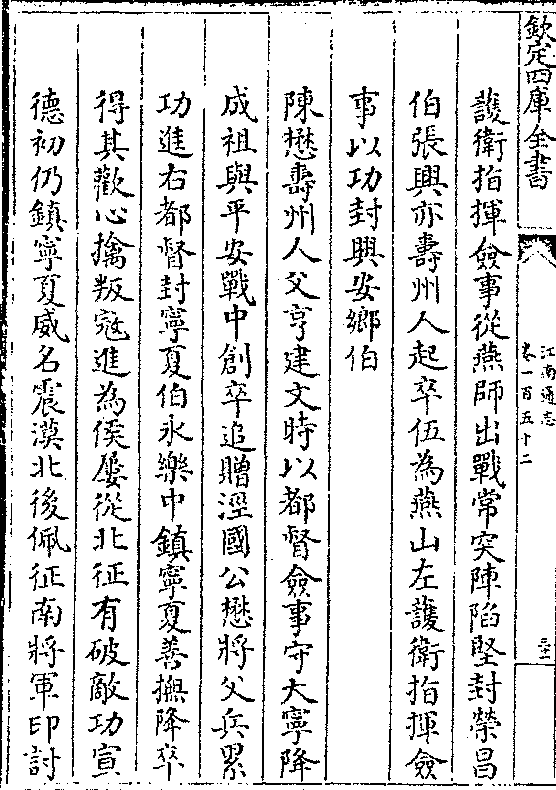 欽定四庫全書
江南通志
卷一百五十二
三十一
護衛指揮僉事從燕師出戰常突陣陷堅封榮昌
伯張興亦壽州人起卒伍為燕山左護衛指揮僉
事以功封興安鄉伯
陳懋壽州人父亨建文時以都督僉事守大寧降
成祖與平安戰中創卒追贈涇國公懋將父兵累
功進右都督封寧夏伯永樂中鎮寧夏善撫降卒
得其歡心擒叛冦進為侯屢從北征有破敵功宣
德初仍鎮寧夏威名震漠北後佩征南將軍印討